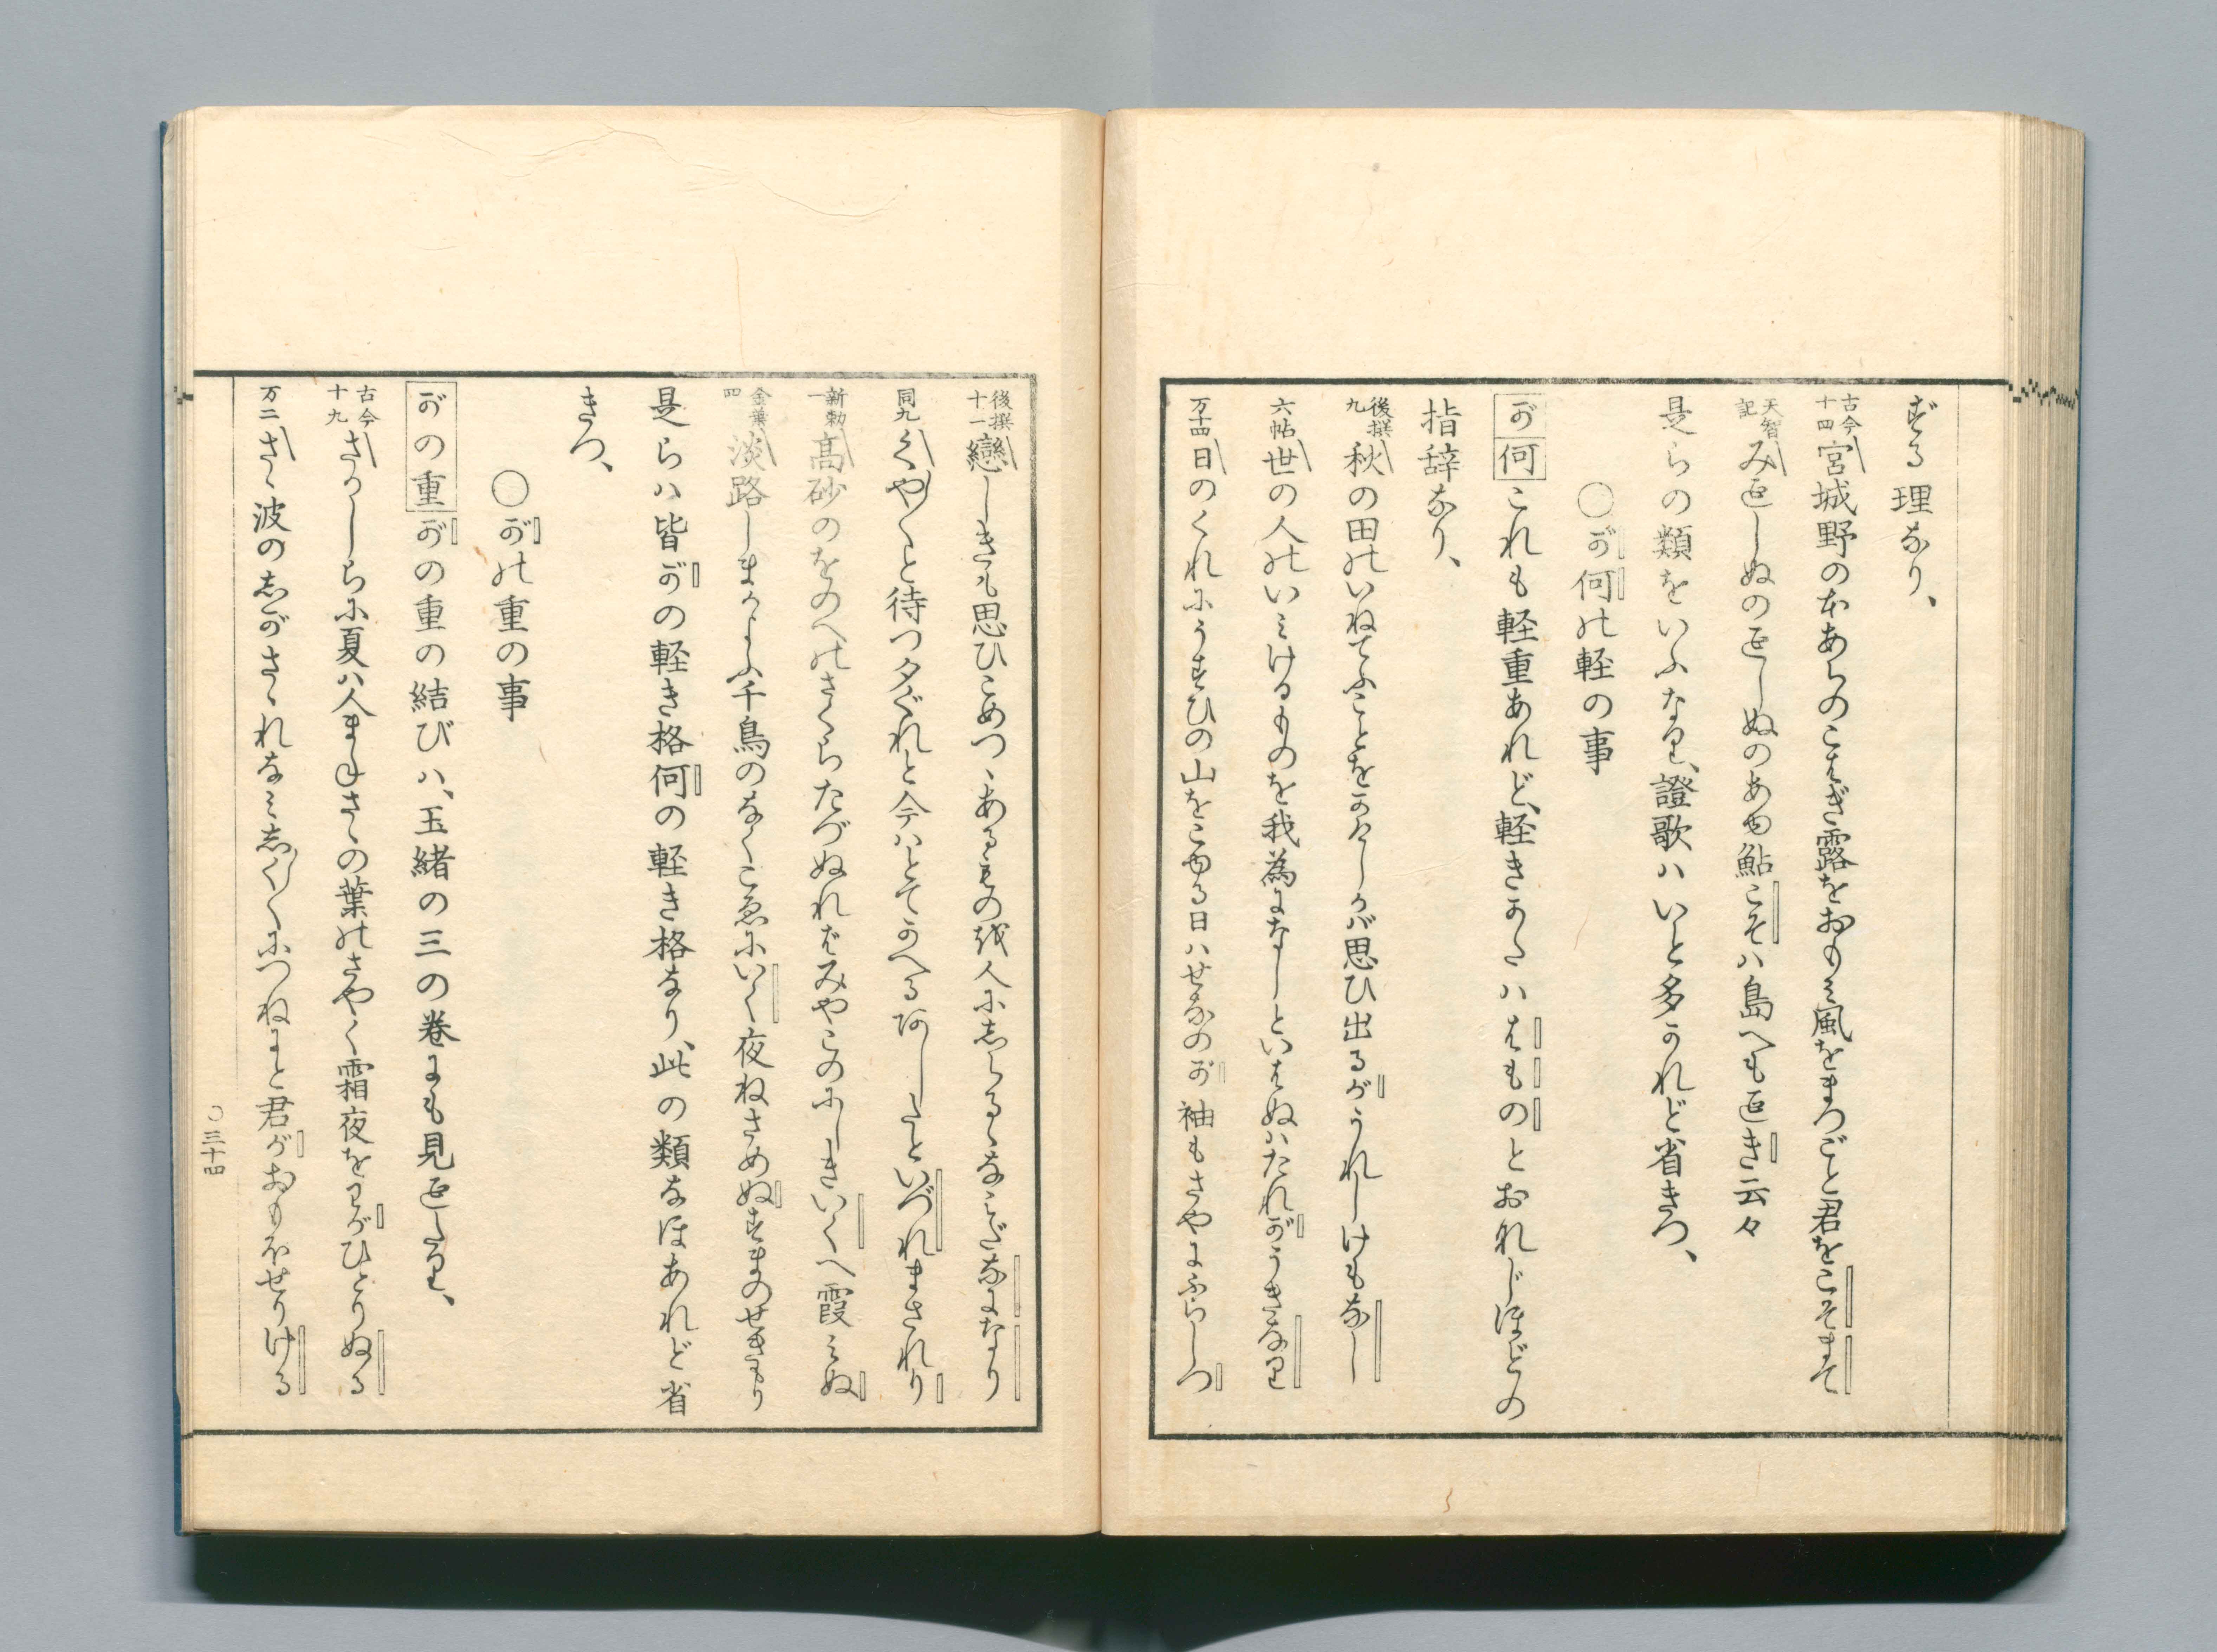 ずる理なり、
古今十四 宮城野の本あらのこはぎ露をおもみ風をまつごと君をこそまて
天智記 みえしぬのえしぬのあゆ鮎こそハ島へもえき云々
是らの類をいふなり、證歌ハいと多かれど省きつ、
〇が何の軽の事
が何 これも軽重あれど、軽きかたハはものとおなじほどの
指辞なり、
後撰九 秋の田のいねてふことをかけしかバ思ひ出るがうれしけもなし
六帖 世の人のいミけるものを我為になしといはぬハたれがうきなり
万十四 日のくれにうすひの山をこゆる日ハせなのが袖もさやにふらしつ
後撰十一 戀しきも思ひこめつゝあるものを人にしらるゝなミだなになり
同九 くやくやと待つ夕ぐれと今ハとてかへるあしたといづれまされり
新勅一 高砂のをのへのさくらたづぬれはみやこのにしきいくへ霞ミぬ
金葉四 淡路しまかよふ千鳥のなくこゑにいく夜ねさめぬすまのせきもり
是らハ皆がの軽き格何の軽き格なり、此の類なほあれど省
きつ、
〇がの重の事
がの重 がの重の結びハ、玉緒の三の巻にも見えたり、
古今十九 さかしらに夏ハ人まねさゝの葉のさやく霜夜をわがひとりぬる
万二 さゝ波のしがさゝれなミしくしくにつねにと君がおもほせりける
〇三十四